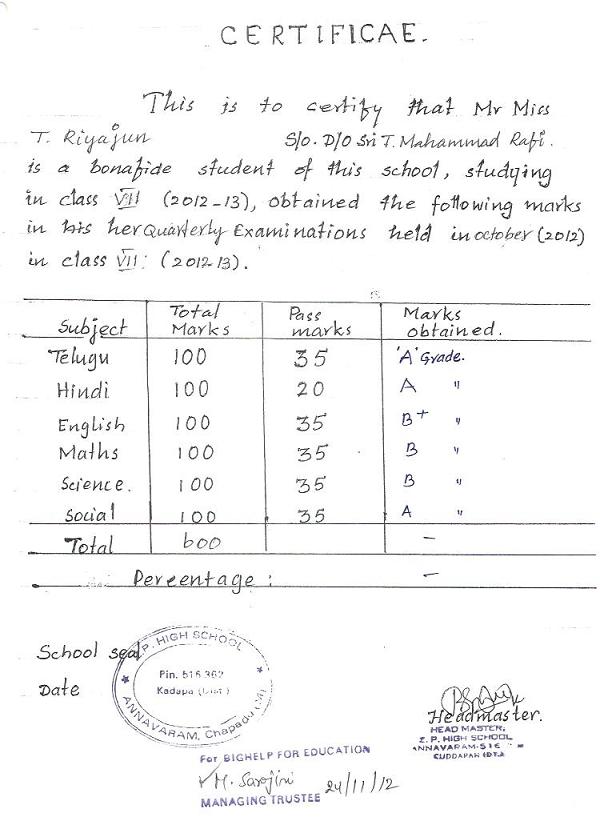 CERTIFICAE.
This is to certify that Mr Miss
T. Riyajun S/o. D/o Sri T. Mahammad Rafi.
is a bonafide student of this school, studying
in class VII (2012-13), obtained the following marks
in his her Quarterly Examinations held in october (2012)
in class VII: (2012-13).
Subject Total Marks Pass marks Marks obtained.
Telugu 100 35 'A' Grade.
Hindi 100 20 A "
English 100 35 B+ "
Maths 100 35 B "
Science. 100 35 B "
Social 100 35 A "
Total 600 -
Percentage: -
School seal
Date
Z.P. HIGH SCHOOL
Pin. 516 362
Kadapa (Dist)
ANNAVARAM, Chapadu (M)
Headmaster.
HEAD MASTER,
Z. P. HIGH SCHOOL
ANNAVARAM-516
CUDDAPAH (DT.)
For BIGHELP FOR EDUCATION
M. Sarojini 24/11/12
MANAGING TRUSTEE